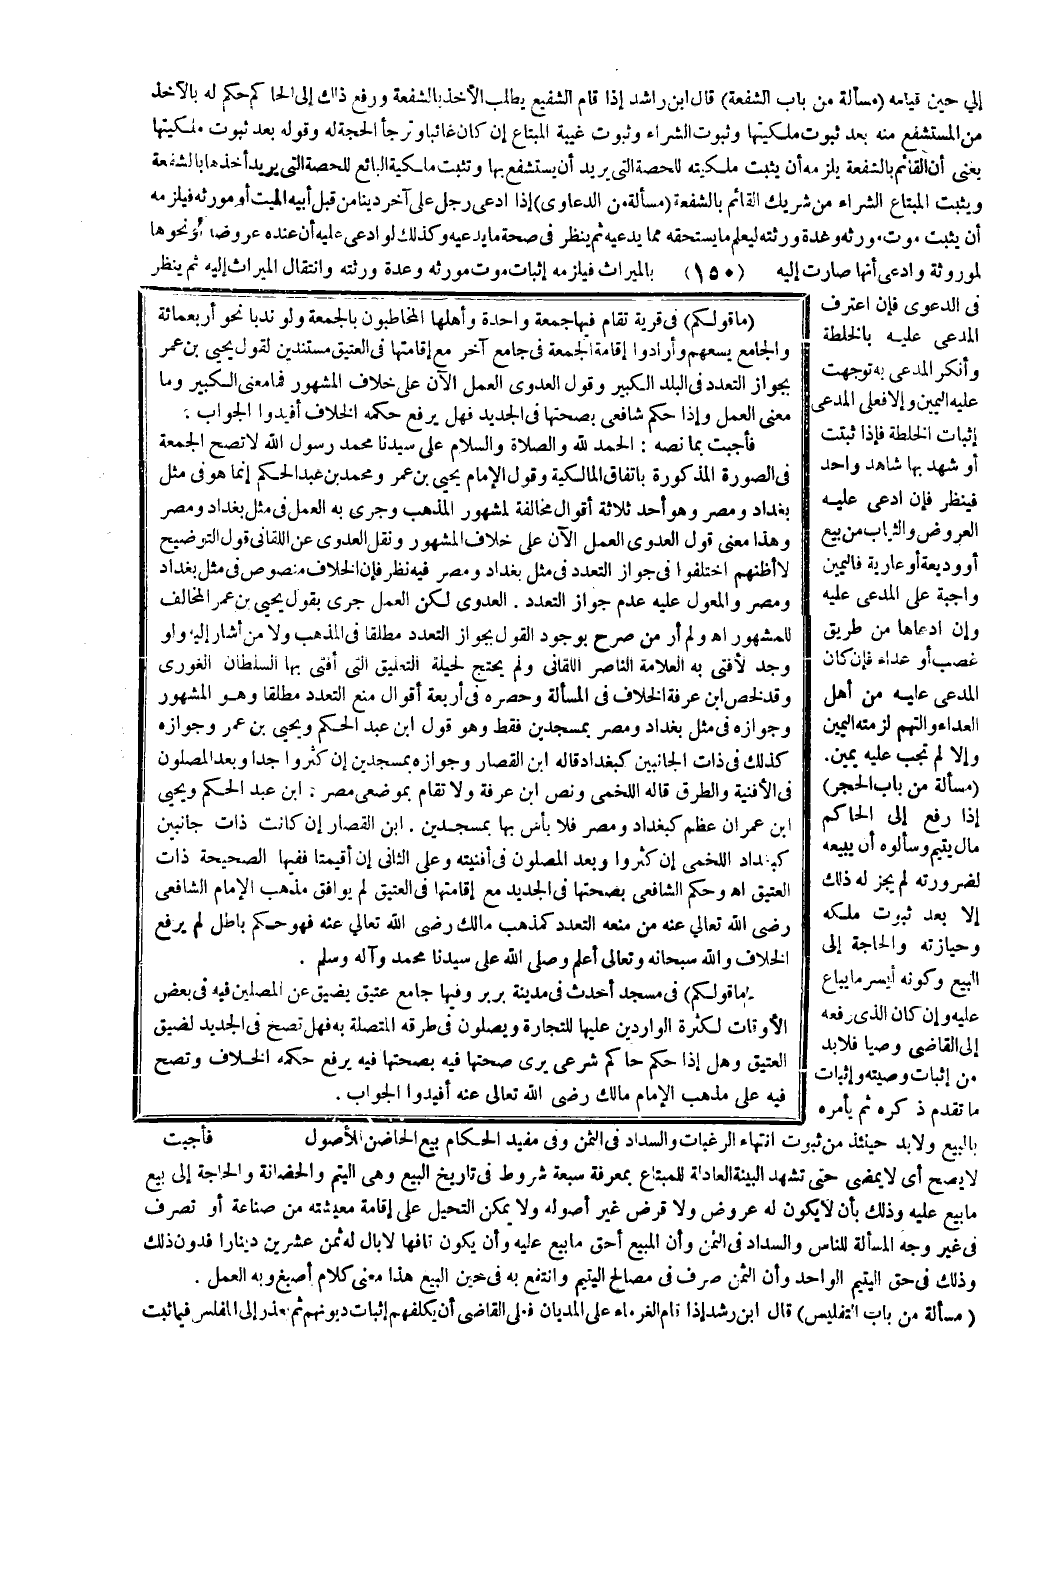 إلي حين قيامه (مسألة من باب الشفعة) قال ابن راشد إذا قام الشفيع يطلب الأخذ بالشفعة ورفع ذلك إلى الحاكم حكم له بالأخذ
من المستشفع منه بعد ثبوت ملكيتها وثبوت الشراء وثبوت غيبة المبتاع إن كان غائبا وترجأ الحجة له وقوله بعد ثبوت ملكيتها
يعنى أن القائم بالشفعة يلزمه أن يثبت ملكيته للحصة التى يريد أن يستشفع بها وتثبت ملكية البائع للحصة التى يريد أخذها بالشفعة
ويثبت المبتاع الشراء من شريك القائم بالشفعة (مسألة من الدعاوى) إذا ادعى رجل على آخر دينا من قبل أبيه الميت أو مورثه فيلزمه
أن يثبت موت مورثه وعدة ورثته ليعلم ما يستحقه مما يدعيه ثم ينظر فى صحة ما يدعيه وكذلك لو ادعى عليه أن عنده عروضا أو نحوها
لموروثة وادعى أنها صارت إليه (١٥٠) بالميراث فيلزمه إثبات موت مورثه وعدة ورثته وانتقال الميراث إليه ثم ينظر
فى الدعوى فإن اعترف
المدعى عليه بالخلطة
وأنكر المدعى به توجهت
عليه اليمين وإلا فعلى المدعى
إثبات الخلطة فإذا ثبتت
أو شهد بها شاهد واحد
فينظر فإن ادعى عليه
العروض والثياب من بيع
أو وديعة أو عارية فاليمين
واجبة على المدعى عليه
وإن ادعاها من طريق
غصب أو عداء فإن كان
المدعى عليه من أهل
العداء والتهم لزمته اليمين
وإلا لم تجب عليه يمين.
(مسألة من باب الحجر)
إذا رفع إلى الحاكم
مال يتيم وسألوه أن يبيعه
لضرورته لم يجز له ذلك
إلا بعد ثبوت ملكه
وحيازته والحاجة إلى
البيع وكونه أيسر ما يباع
عليه وإن كان الذى رفعه
إلى القاضى وصيا فلابد
من إثبات وصيته وإثبات
ما تقدم ذكره ثم يأمره
(ما قولكم) فى قرية تقام فيها جمعة واحدة وأهلها المخاطبون بالجمعة ولو ندبا نحو أربعمائة
والجامع يسعهم وأرادوا إقامة الجمعة فى جامع آخر مع إقامتها فى العتيق مستندين لقول يحيى بن عمر
بجواز التعدد فى البلد الكبير وقول العدوى العمل الآن على خلاف المشهور فما معنى الكبير وما
معنى العمل وإذا حكم شافعى بصحتها فى الجديد فهل يرفع حكمه الخلاف أفيدوا الجواب :
فأجبت بما نصه : الحمد لله والصلاة والسلام على سيدنا محمد رسول الله لا تصح الجمعة
فى الصورة المذكورة باتفاق المالكية وقول الإمام يحيى بن عمر ومحمد بن عبد الحكم إنما هو فى مثل
بغداد ومصر وهو أحد ثلاثة أقوال مخالفة لمشهور المذهب وجرى به العمل فى مثل بغداد ومصر
وهذا معنى قول العدوى العمل الآن على خلاف المشهور ونقل العدوى عن اللقانى قول التوضيح
لا أظنهم اختلفوا فى جواز التعدد فى مثل بغداد ومصر فيه نظر فإن الخلاف منصوص فى مثل بغداد
ومصر والمعول عليه عدم جواز التعدد . العدوى لكن العمل جرى بقول يحيى بن عمر المخالف
للمشهور اه ولم أر من صرح بوجود القول بجواز التعدد مطلقا فى المذهب ولا من أشار إليه ولو
وجد لأفتى به العلامة الناصر اللقانى ولم يحتج لحيلة التعليق التى أفتى بها السلطان الغورى
وقد لخص ابن عرفة الخلاف فى المسألة وحصره فى أربعة أقوال منع التعدد مطلقا وهو المشهور
وجوازه فى مثل بغداد ومصر بمسجدين فقط وهو قول ابن عبد الحكم ويحيى بن عمر وجوازه
كذلك فى ذات الجانبين كبغداد قاله ابن القصار وجوازه بمسجدين إن كثروا جدا وبعد المصلون
فى الأفنية والطرق قاله اللخمى ونص ابن عرفة ولا تقام بموضعى مصر : ابن عبد الحكم ويحيى
ابن عمر إن عظم كبغداد ومصر فلا بأس بها بمسجدين . ابن القصار إن كانت ذات جانبين
كبغداد اللخمى إن كثروا وبعد المصلون فى أفنيته وعلى الثانى إن أقيمتا ففيها الصحيحة ذات
العتيق اه وحكم الشافعى بصحتها فى الجديد مع إقامتها فى العتيق لم يوافق مذهب الإمام الشافعى
رضى الله تعالي عنه من منعه التعدد كمذهب مالك رضى الله تعالي عنه فهو حكم باطل لم يرفع
الخلاف والله سبحانه وتعالى أعلم وصلى الله على سيدنا محمد وآله وسلم .
(ما قولكم) فى مسجد أحدث فى مدينة بربر وفيها جامع عتيق يضيق عن المصلين فيه فى بعض
الأوقات لكثرة الواردين عليها للتجارة ويصلون فى طرقه المتصلة به فهل تصح فى الجديد لضيق
العتيق وهل إذا حكم حاكم شرعى يرى صحتها فيه بصحتها فيه يرفع حكمه الخلاف وتصح
فيه على مذهب الإمام مالك رضى الله تعالى عنه أفيدوا الجواب .
بالبيع ولابد حينئذ من ثبوت انتهاء الرغبات والسداد فى الثمن وفى مفيد الحكام بيع الحاضن للأصول فأجبت
لا يصح أى لا يمضى حتى تشهد البينة العادلة للمبتاع بمعرفة سبعة شروط فى تاريخ البيع وهى اليتم والحضانة والحاجة إلى بيع
ما بيع عليه وذلك بأن لا يكون له عروض ولا قرض غير أصوله ولا يمكن التحيل على إقامة معيشته من صناعة أو تصرف
فى غير وجه المسألة للناس والسداد فى الثمن وأن المبيع أحق ما بيع عليه وأن يكون تافها لا بال له ثمن عشرين دينارا فدون ذلك
وذلك فى حق اليتيم الواحد وأن الثمن صرف فى مصالح اليتيم وانتفع به فى حين البيع هذا معنى كلام أصبغ وبه العمل .
(مسألة من باب التفليس) قال ابن رشد إذا قام الغرماء على المديان فعلى القاضى أن يكلفهم إثبات ديونهم ثم يعذر إلى المفلس فيما ثبت